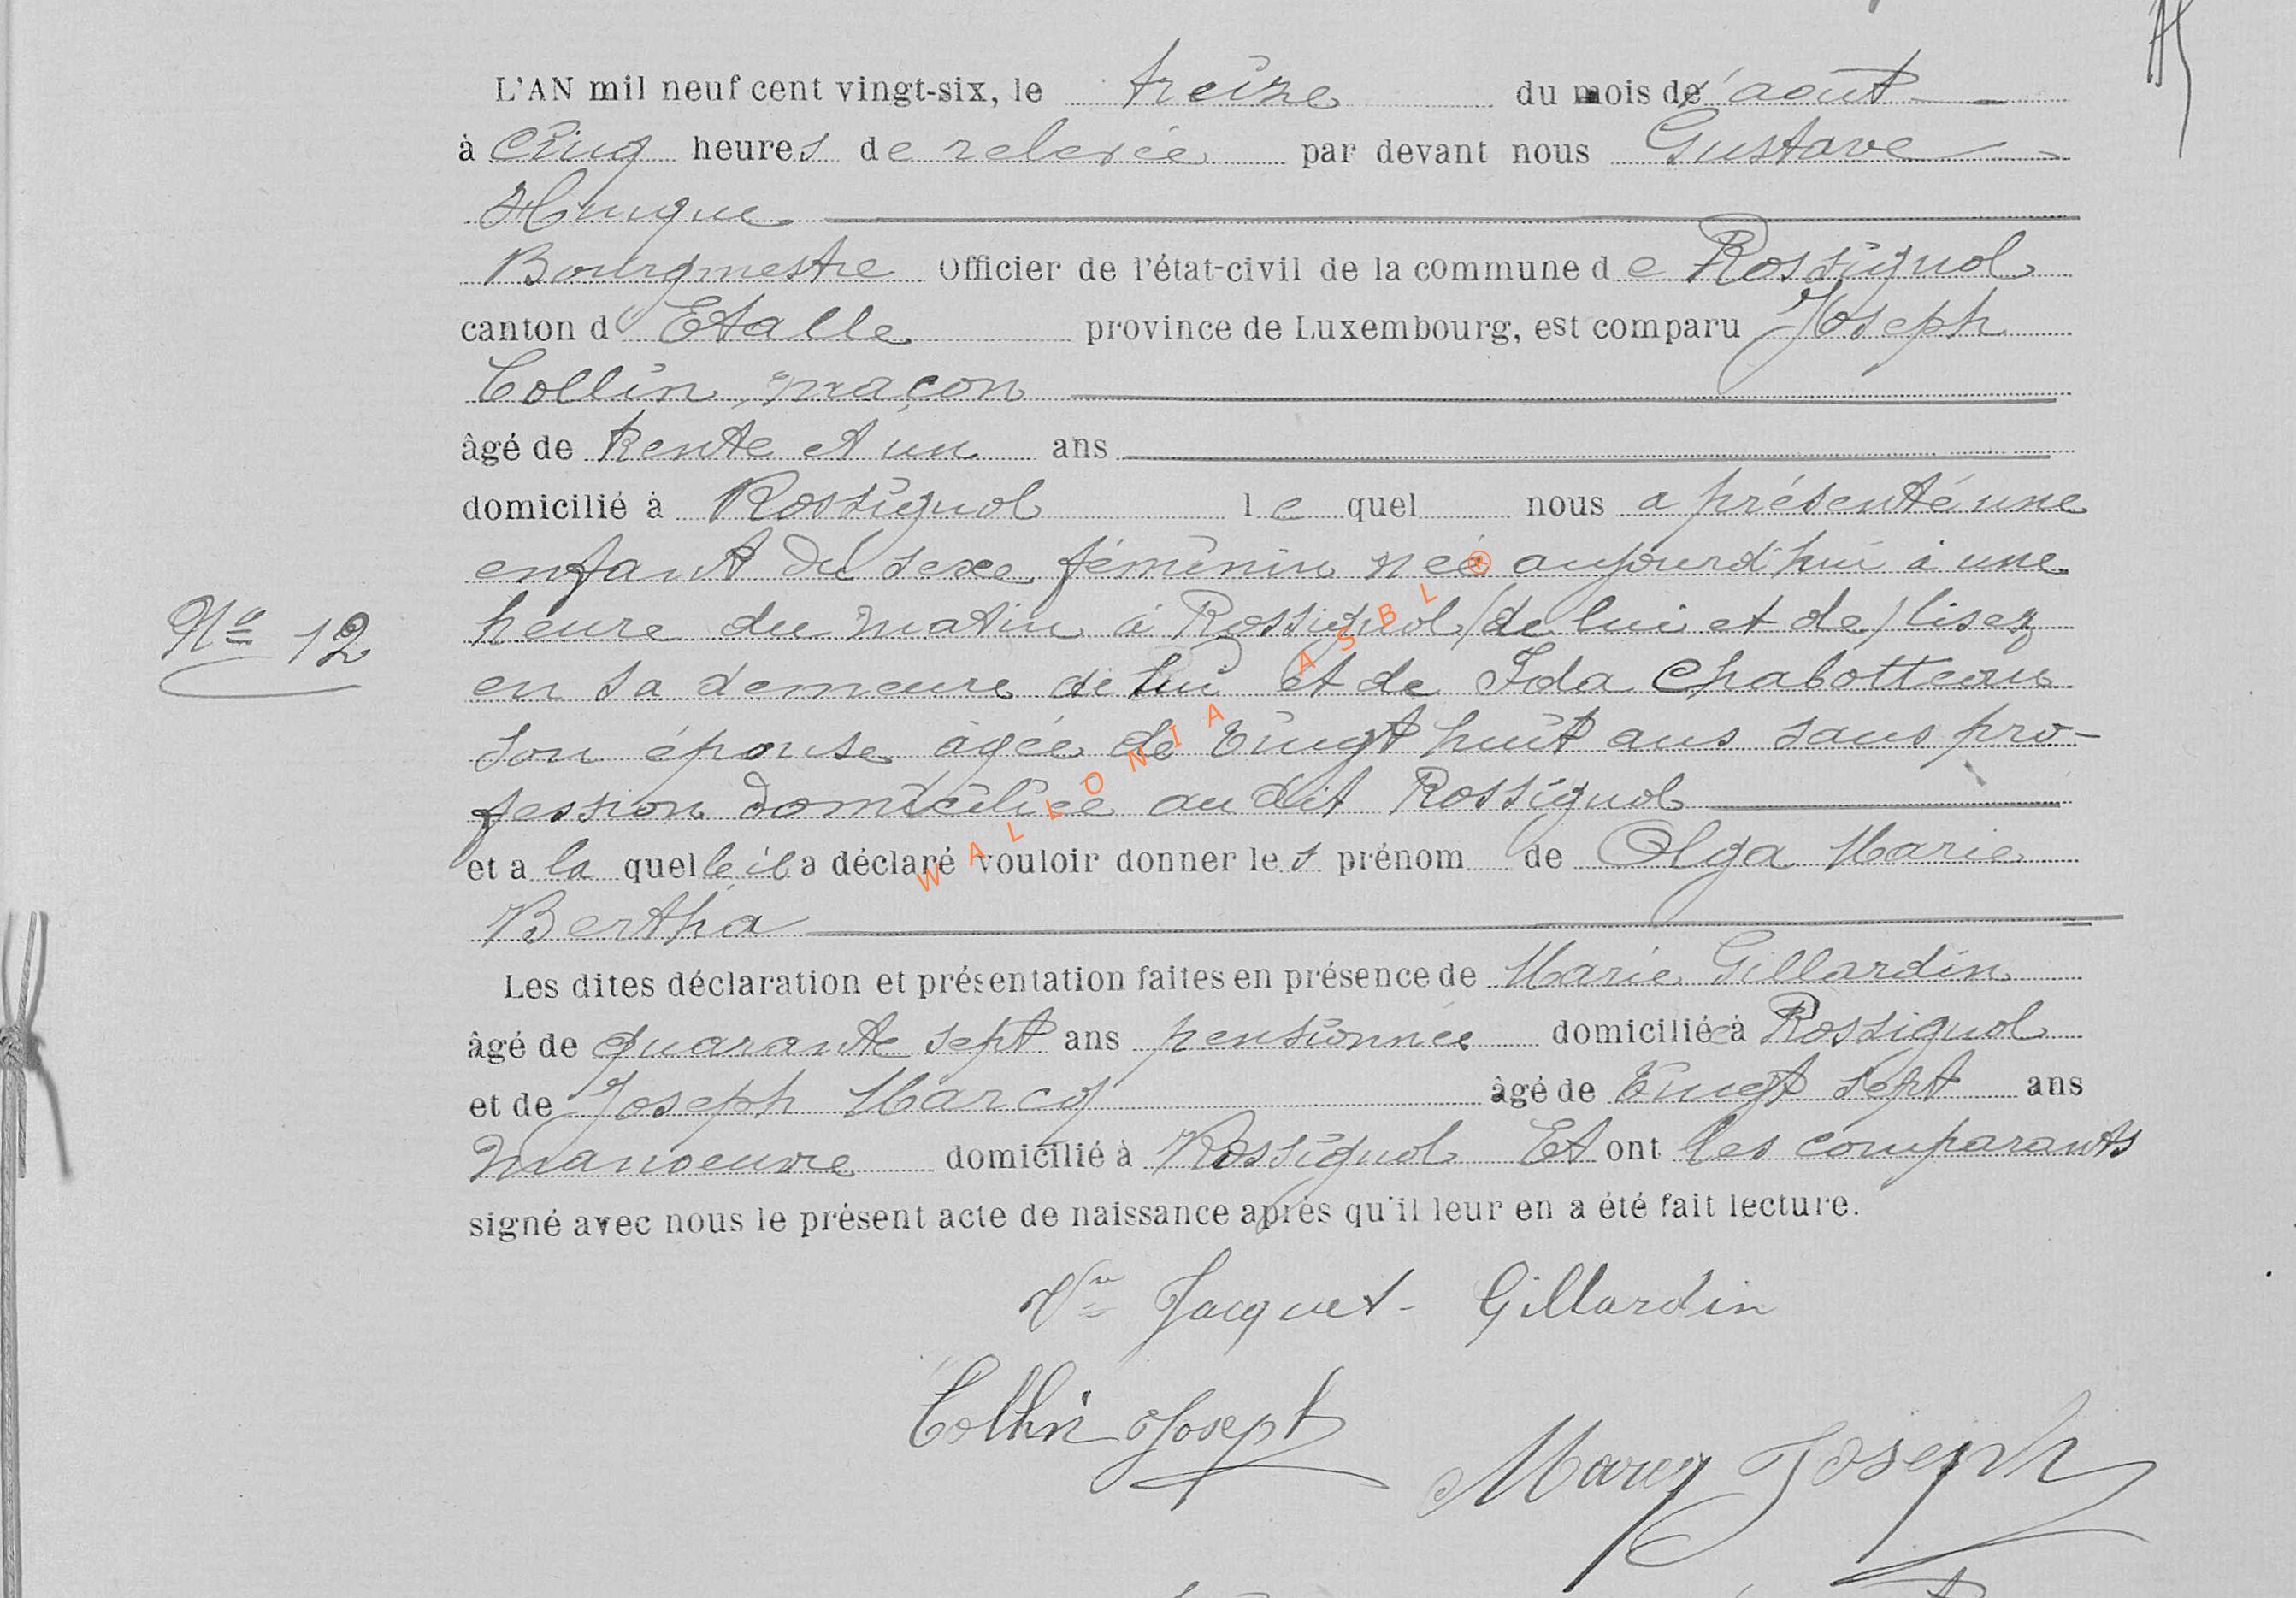 L'AN mil neuf cent vingt-six, le treize du mois d'août
à cinq heures de relevée par devant nous Gustave
Hinque
Bourgmestre Officier de l'état-civil de la commune de Rossignol
canton d'Etalle province de Luxembourg, est comparu Joseph
Collin, maçon
âgé de trente et un ans
domicilié à Rossignol lequel nous a présenté une
enfant du sexe féminin née aujourd'hui à une
N° 12
heure du matin à Rossignol (de lui et de) lisez
en sa demeure de lui et de Ida Chabotteaux
son épouse âgée de vingt huit ans sans pro-
fession domiciliée au dit Rossignol
et a laquelle il a déclaré vouloir donner les prénom de Olga Marie
Bertha
Les dites déclaration et présentation faites en présence de Marie Gillardin
âgé de quarante sept ans pensionnée domiciliée à Rossignol
et de Joseph Marcy âgé de vingt sept ans
manoeuvre domicilié à Rossignol Et ont les comparants
signé avec nous le présent acte de naissance après qu'il leur en a été fait lecture.
Vve Jacquet - Gillardin
Collin Joseph
Marcy Joseph
WALLONIA ASBL ®